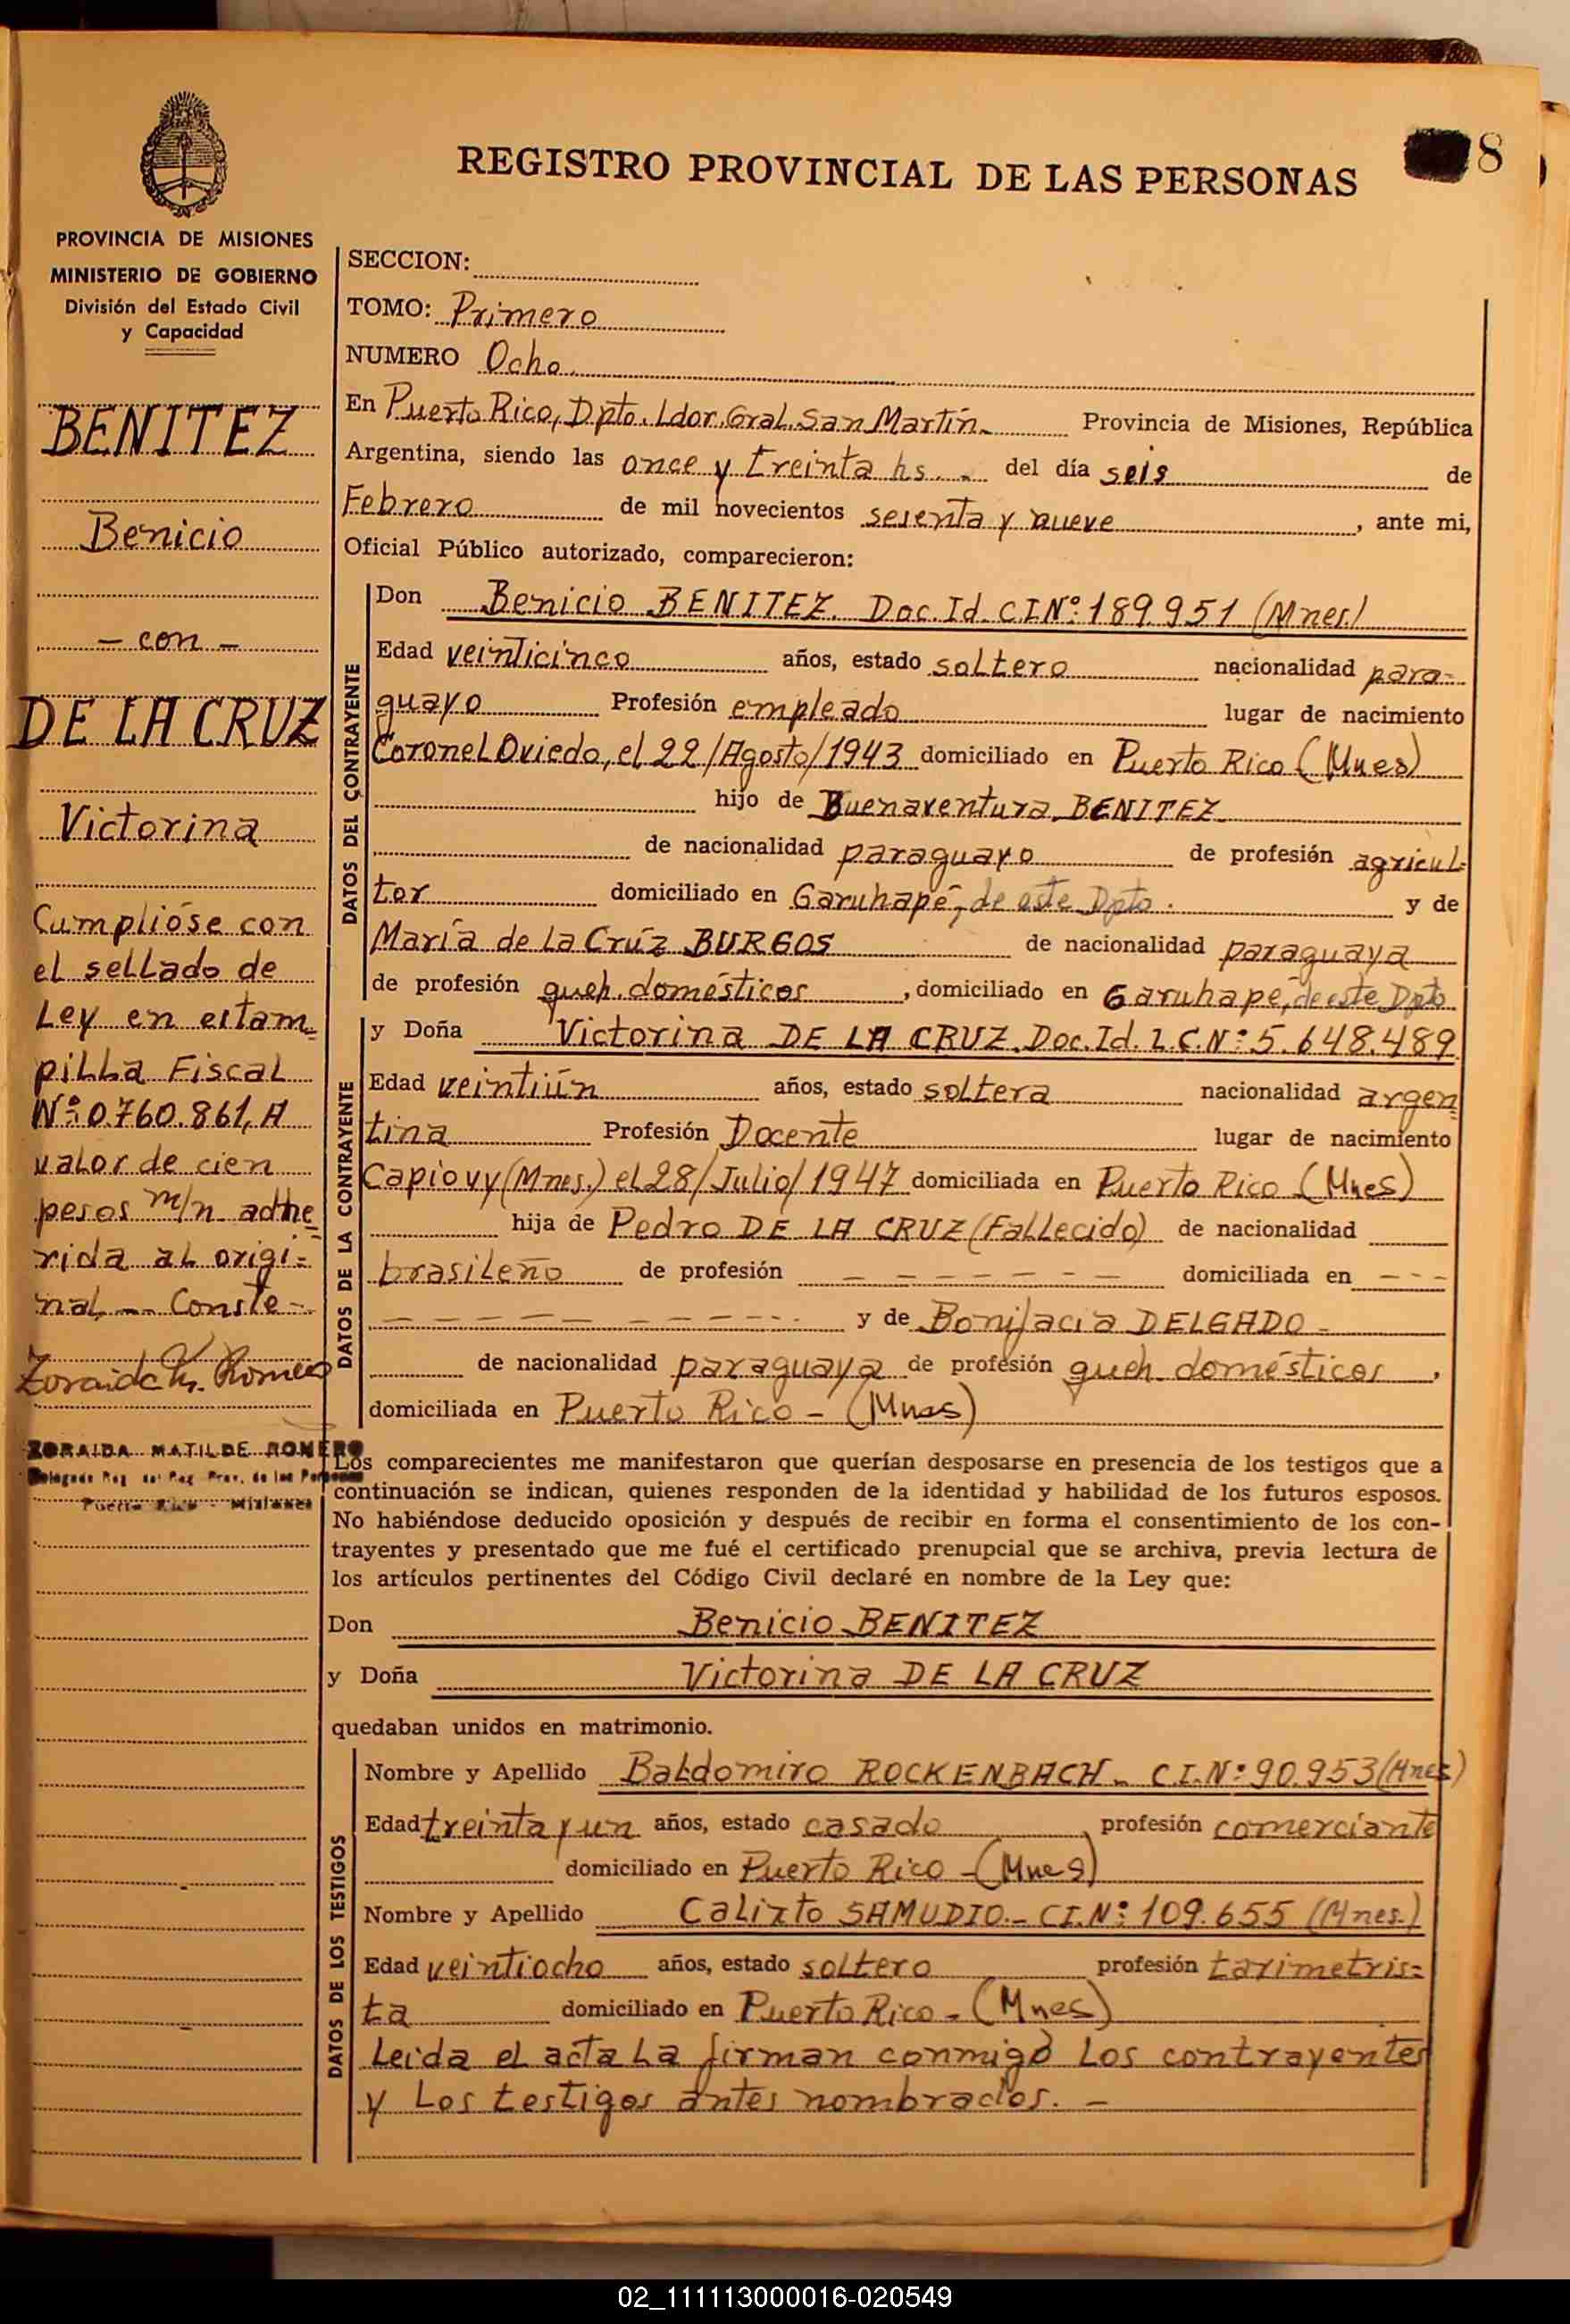 REGISTRO PROVINCIAL DE LAS PERSONAS
8
PROVINCIA DE MISIONES
MINISTERIO DE GOBIERNO
División del Estado Civil
y Capacidad
BENITEZ
Benicio
- con -
DE LA CRUZ
Victorina
Cumplióse con
el sellado de
Ley en estam=
pilla Fiscal
Nº: 0.760.861, A
valor de cien
pesos m/n adhe
rida al origi=
nal -- Conste -
Zoraida M. Romero
ZORAIDA MATILDE ROMERO
Delegada Reg. del Reg. Prov. de las Personas
Puerto Rico - Misiones
SECCION:
TOMO: Primero
NUMERO Ocho.
En Puerto Rico, Dpto. Ldor. Gral. San Martín. Provincia de Misiones, República
Argentina, siendo las once y treinta hs. - del día seis de
Febrero de mil novecientos sesenta y nueve, ante mi,
Oficial Público autorizado, comparecieron:
DATOS DEL CONTRAYENTE
Don Benicio BENITEZ. Doc. Id. C.I Nº: 189.951 (Mnes.)
Edad veinticinco años, estado soltero nacionalidad para=
guayo Profesión empleado lugar de nacimiento
Coronel Oviedo, el 22/Agosto/1943 domiciliado en Puerto Rico (Mnes)
hijo de Buenaventura BENITEZ
de nacionalidad paraguayo de profesión agricul=
tor domiciliado en Garuhapé, de este Dpto. y de
María de la Crúz BURGOS de nacionalidad paraguaya
de profesión queh. domésticos, domiciliado en Garuhape, de este Dpto
DATOS DE LA CONTRAYENTE
y Doña Victorina DE LA CRUZ. Doc. Id. L.C. Nº: 5.648.489
Edad veintiún años, estado soltera nacionalidad argen=
tina Profesión Docente lugar de nacimiento
Capiovy (Mnes.) el 28/Julio/1947 domiciliada en Puerto Rico (Mnes)
hija de Pedro DE LA CRUZ (Fallecido) de nacionalidad
brasileño de profesión - - - - - - - domiciliada en - - -
- - - - - - - - - - y de Bonifacia DELGADO -
de nacionalidad paraguaya de profesión queh. domésticos,
domiciliada en Puerto Rico - (Mnes)
Los comparecientes me manifestaron que querían desposarse en presencia de los testigos que a
continuación se indican, quienes responden de la identidad y habilidad de los futuros esposos.
No habiéndose deducido oposición y después de recibir en forma el consentimiento de los con-
trayentes y presentado que me fué el certificado prenupcial que se archiva, previa lectura de
los artículos pertinentes del Código Civil declaré en nombre de la Ley que:
Don Benicio BENITEZ
y Doña Victorina DE LA CRUZ
quedaban unidos en matrimonio.
DATOS DE LOS TESTIGOS
Nombre y Apellido Baldomiro ROCKENBACH - C.I. Nº: 90.953 (Mnes)
Edad treinta y un años, estado casado profesión comerciante
domiciliado en Puerto Rico - (Mnes)
Nombre y Apellido Calixto SAMUDIO.- C.I. Nº: 109.655 (Mnes.)
Edad veintiocho años, estado soltero profesión taximetris=
ta domiciliado en Puerto Rico - (Mnes)
Leida el acta la firman conmigo los contrayentes
y los testigos antes nombrados. -
02_111113000016-020549